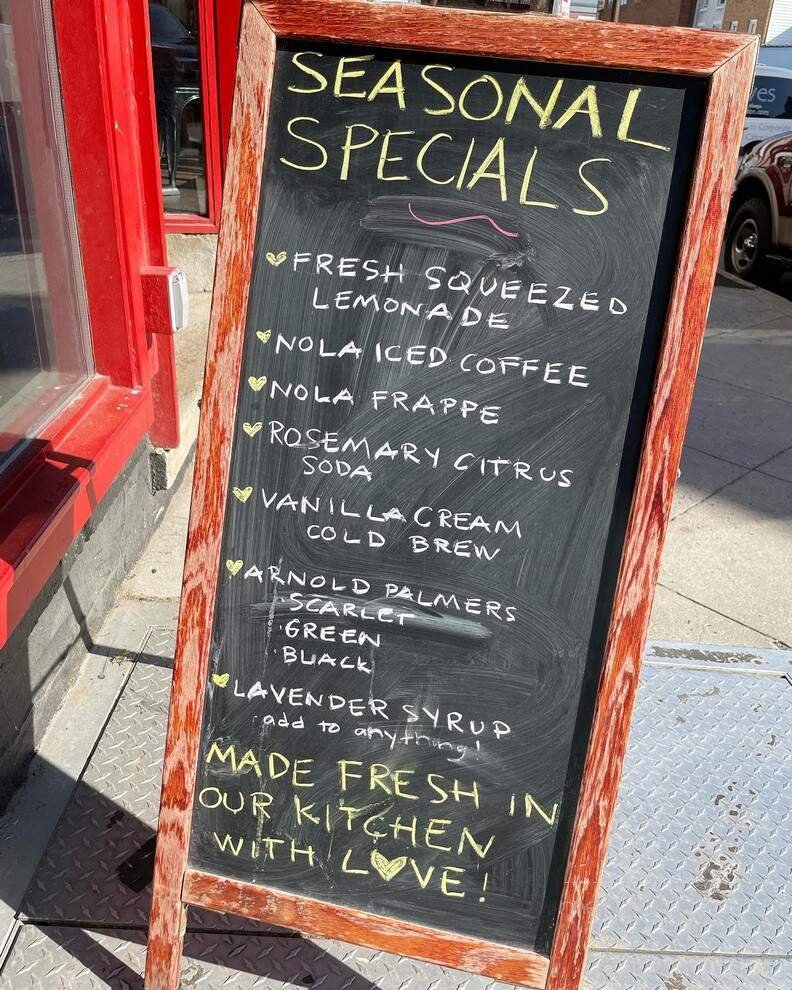 SEASONAL
SPECIALS
FRESH SQUEEZED
LEMONADE
NOLA ICED COFFEE
NOLA FRAPPE
ROSEMARY CITRUS
SODA
VANILLA CREAM
COLD BREW
ARNOLD PALMERS
·SCARLET
·GREEN
·BLACK
LAVENDER SYRUP
·add to anything!
MADE FRESH IN
OUR KITCHEN
WITH L♡VE!